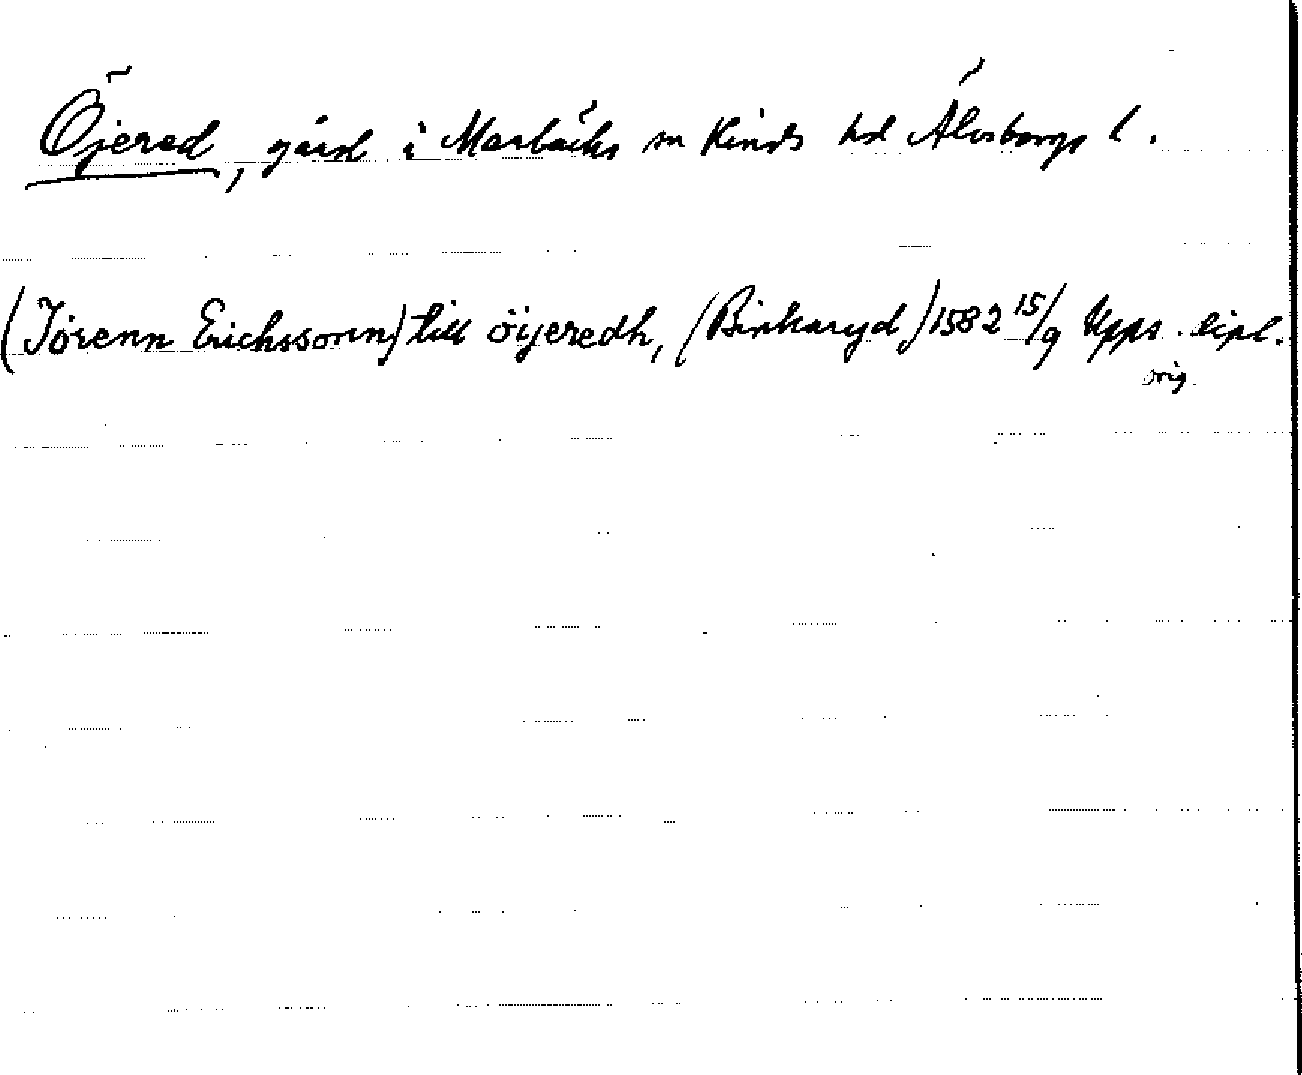 Öjered, gård i Marbäcks sn Kinds hd Älvsborgs l.
(Jörenn Erichssonn) till öijeredh, (Binkaryd) 1582 15/9 Upps. dipl.
orig.